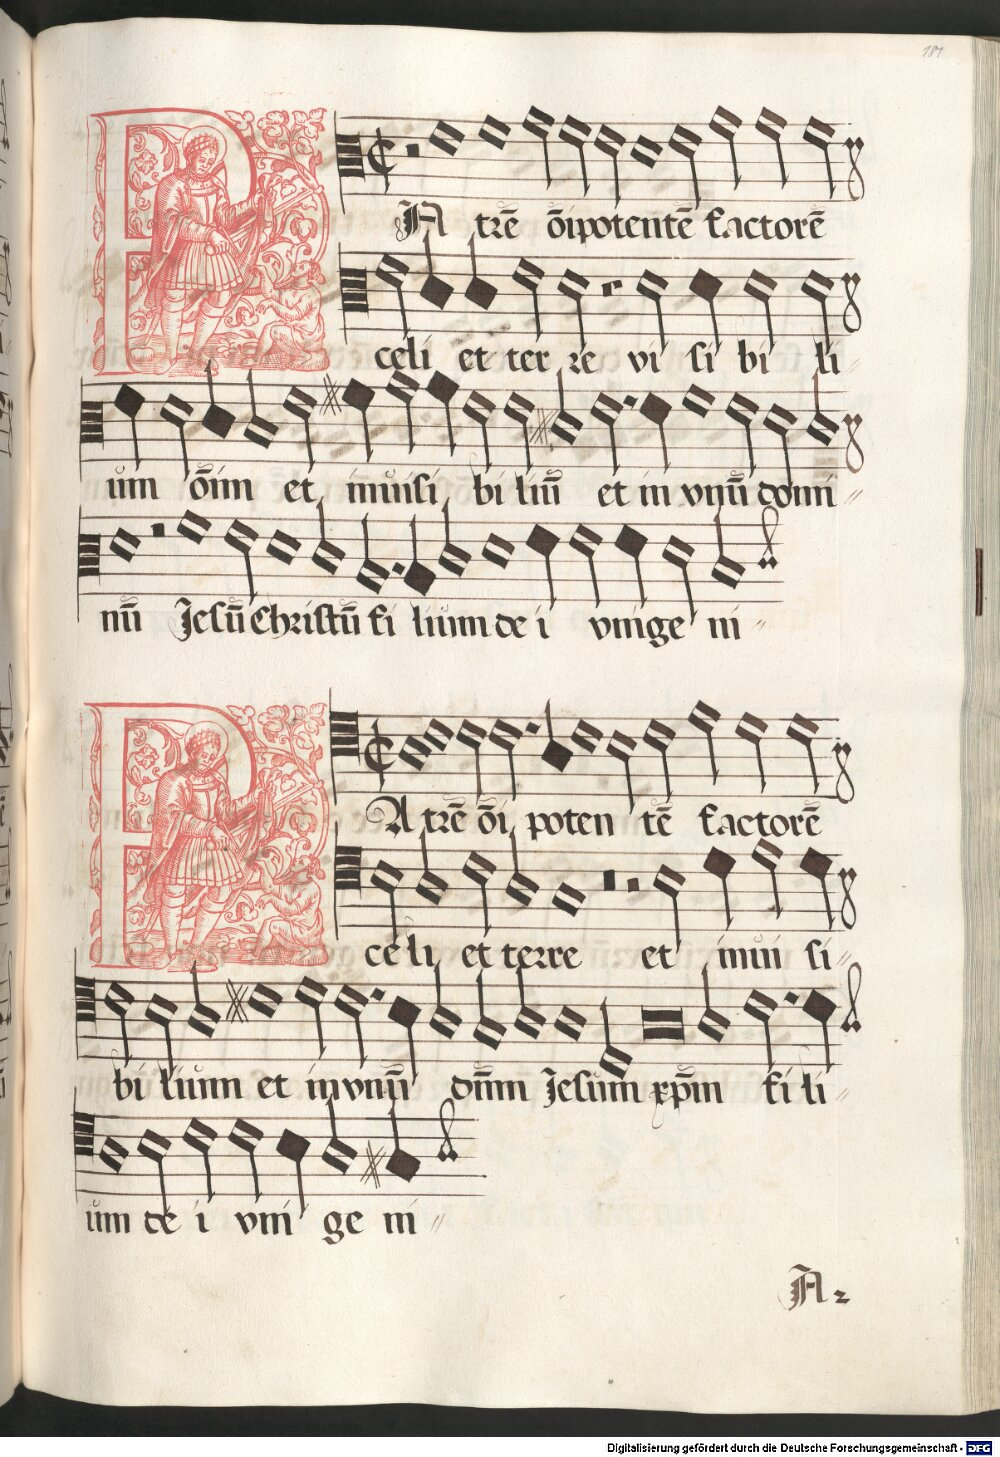 181
PA trē ōipotentē factorē
celi et ter re vi si bi li
um ōīm et inuisi biliū et in vnū domi
nū Jesū Christū fi lium de i vnige ni
PA trē ōi poten tē factorē
celi et terre et inui si
bi lium et in vnū dn̄m Jesum xp̄m fi li
um de i vni ge ni
A 2
Digitalisierung gefördert durch die Deutsche Forschungsgemeinschaft - DFG